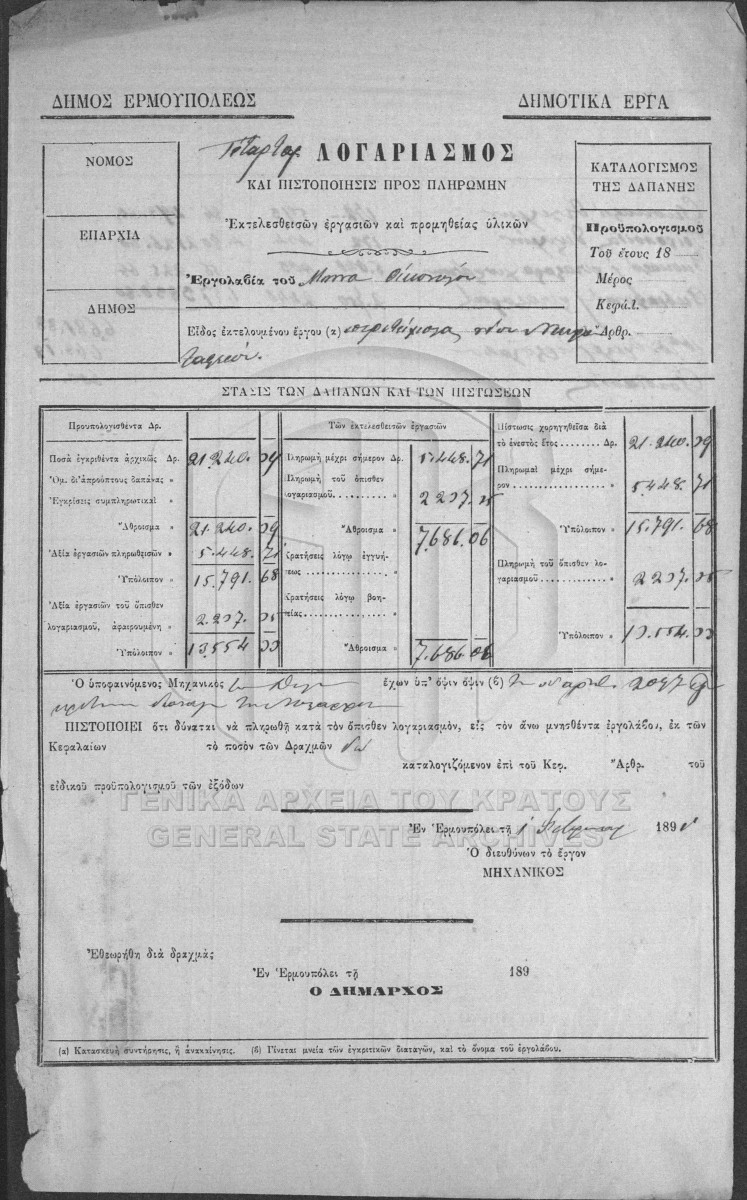 ΔΗΜΟΣ ΕΡΜΟΥΠΟΛΕΩΣ
ΔΗΜΟΤΙΚΑ ΕΡΓΑ
ΝΟΜΟΣ
ΕΠΑΡΧΙΑ
ΔΗΜΟΣ
Τέταρτος ΛΟΓΑΡΙΑΣΜΟΣ
ΚΑΙ ΠΙΣΤΟΠΟΙΗΣΙΣ ΠΡΟΣ ΠΛΗΡΩΜΗΝ
Ἐκτελεσθεισῶν ἐργασιῶν καὶ προμηθείας ὑλικῶν
Ἐργολαβία τοῦ
Εἶδος ἐκτελουμένου ἔργου (α)
ΚΑΤΑΛΟΓΙΣΜΟΣ
ΤΗΣ ΔΑΠΑΝΗΣ
Προϋπολογισμοῦ
Τοῦ ἔτους 18
Μέρος
Κεφάλ.
Ἄρθρ.
ΣΤΑΣΙΣ ΤΩΝ ΔΑΠΑΝΩΝ ΚΑΙ ΤΩΝ ΠΙΣΤΩΣΕΩΝ
Προυπολογισθέντα Δρ.
Ποσὰ ἐγκριθέντα ἀρχικῶς Δρ. 21.240. 39
Ὁμ. δι' ἀπροόπτους δαπάνας »
Ἐγκρίσεις συμπληρωτικαὶ »
Ἄθροισμα » 21.240. 39
Ἀξία ἐργασιῶν πληρωθεισῶν » 5.448. 71
Ὑπόλοιπον » 15.791. 68
Ἀξία ἐργασιῶν τοῦ ὄπισθεν
λογαριασμοῦ, ἀφαιρουμένη » 2.237. 35
Ὑπόλοιπον » 13.554 33
Τῶν ἐκτελεσθεισῶν ἐργασιῶν
Πληρωμὴ μέχρι σήμερον Δρ. 5.448. 71
Πληρωμὴ τοῦ ὄπισθεν
λογαριασμοῦ » 2237. 35
Ἄθροισμα » 7.686. 06
Κρατήσεις λόγῳ ἐγγυή-
σεως »
Κρατήσεις λόγῳ βοη-
θείας »
Ἄθροισμα » 7.686. 06
Πίστωσις χορηγηθεῖσα διὰ
τὸ ἐνεστὸς ἔτος Δρ. 21.240. 39
Πληρωμαὶ μέχρι σήμε-
ρον » 5.448. 71
Ὑπόλοιπον » 15.791. 68
Πληρωμὴ τοῦ ὄπισθεν λο-
γαριασμοῦ » 2237. 35
Ὑπόλοιπον » 13.554. 33
Ὁ ὑποφαινόμενος Μηχανικὸς ἔχων ὑπ' ὄψιν ὄψιν (β)
ΠΙΣΤΟΠΟΙΕΙ ὅτι δύναται νὰ πληρωθῇ κατὰ τὸν ὄπισθεν λογαριασμόν, εἰς τὸν ἄνω μνησθέντα ἐργολάβον, ἐκ τῶν
Κεφαλαίων τὸ ποσὸν τῶν Δραχμῶν
καταλογιζόμενον ἐπὶ τοῦ Κεφ. Ἄρθρ. τοῦ
εἰδικοῦ προϋπολογισμοῦ τῶν ἐξόδων
ΓΕΝΙΚΑ ΑΡΧΕΙΑ ΤΟΥ ΚΡΑΤΟΥΣ
GENERAL STATE ARCHIVES
Ἐν Ἑρμουπόλει τῇ 189
Ὁ διευθύνων τὸ ἔργον
ΜΗΧΑΝΙΚΟΣ
Ἐθεωρήθη διὰ δραχμὰς
Ἐν Ἑρμουπόλει τῇ 189
Ο ΔΗΜΑΡΧΟΣ
(α) Κατασκευὴ συντήρησις, ἢ ἀνακαίνησις. (β) Γίνεται μνεία τῶν ἐγκριτικῶν διαταγῶν, καὶ τὸ ὄνομα τοῦ ἐργολάβου.